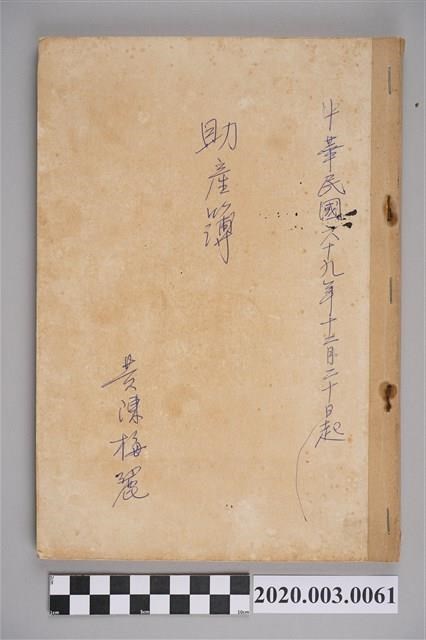 中華民國六十九年十二月二十日起
助產簿
黃陳梅麗
2020.003.0061
1cm
5cm
10cm